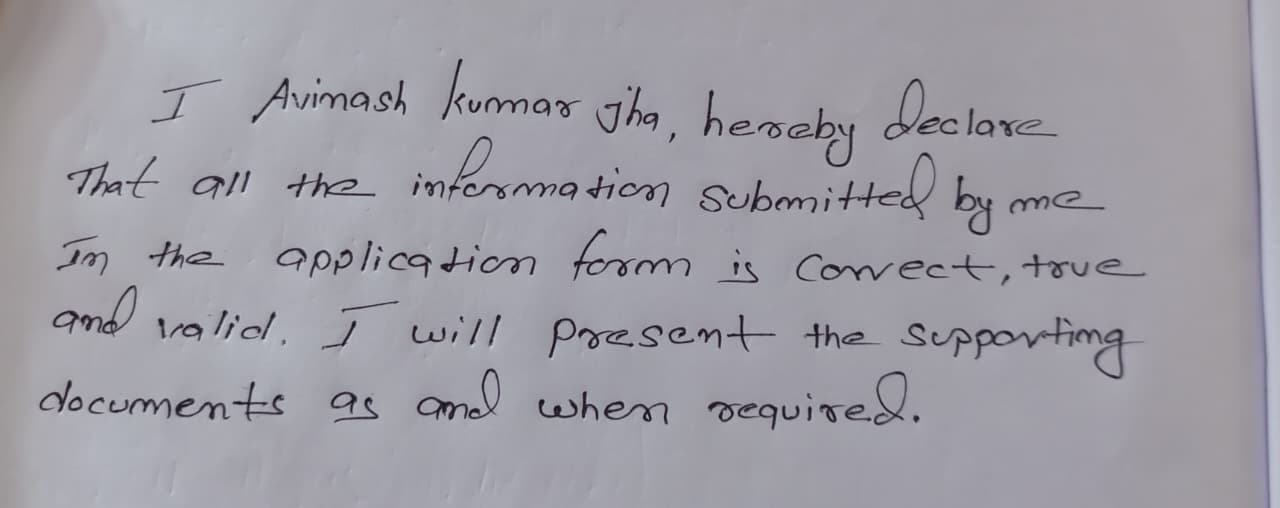 I Avinash kumar jha, hereby declare
That all the information submitted by me
In the application form is correct, true
and valid. I will present the supporting
documents as and when required.